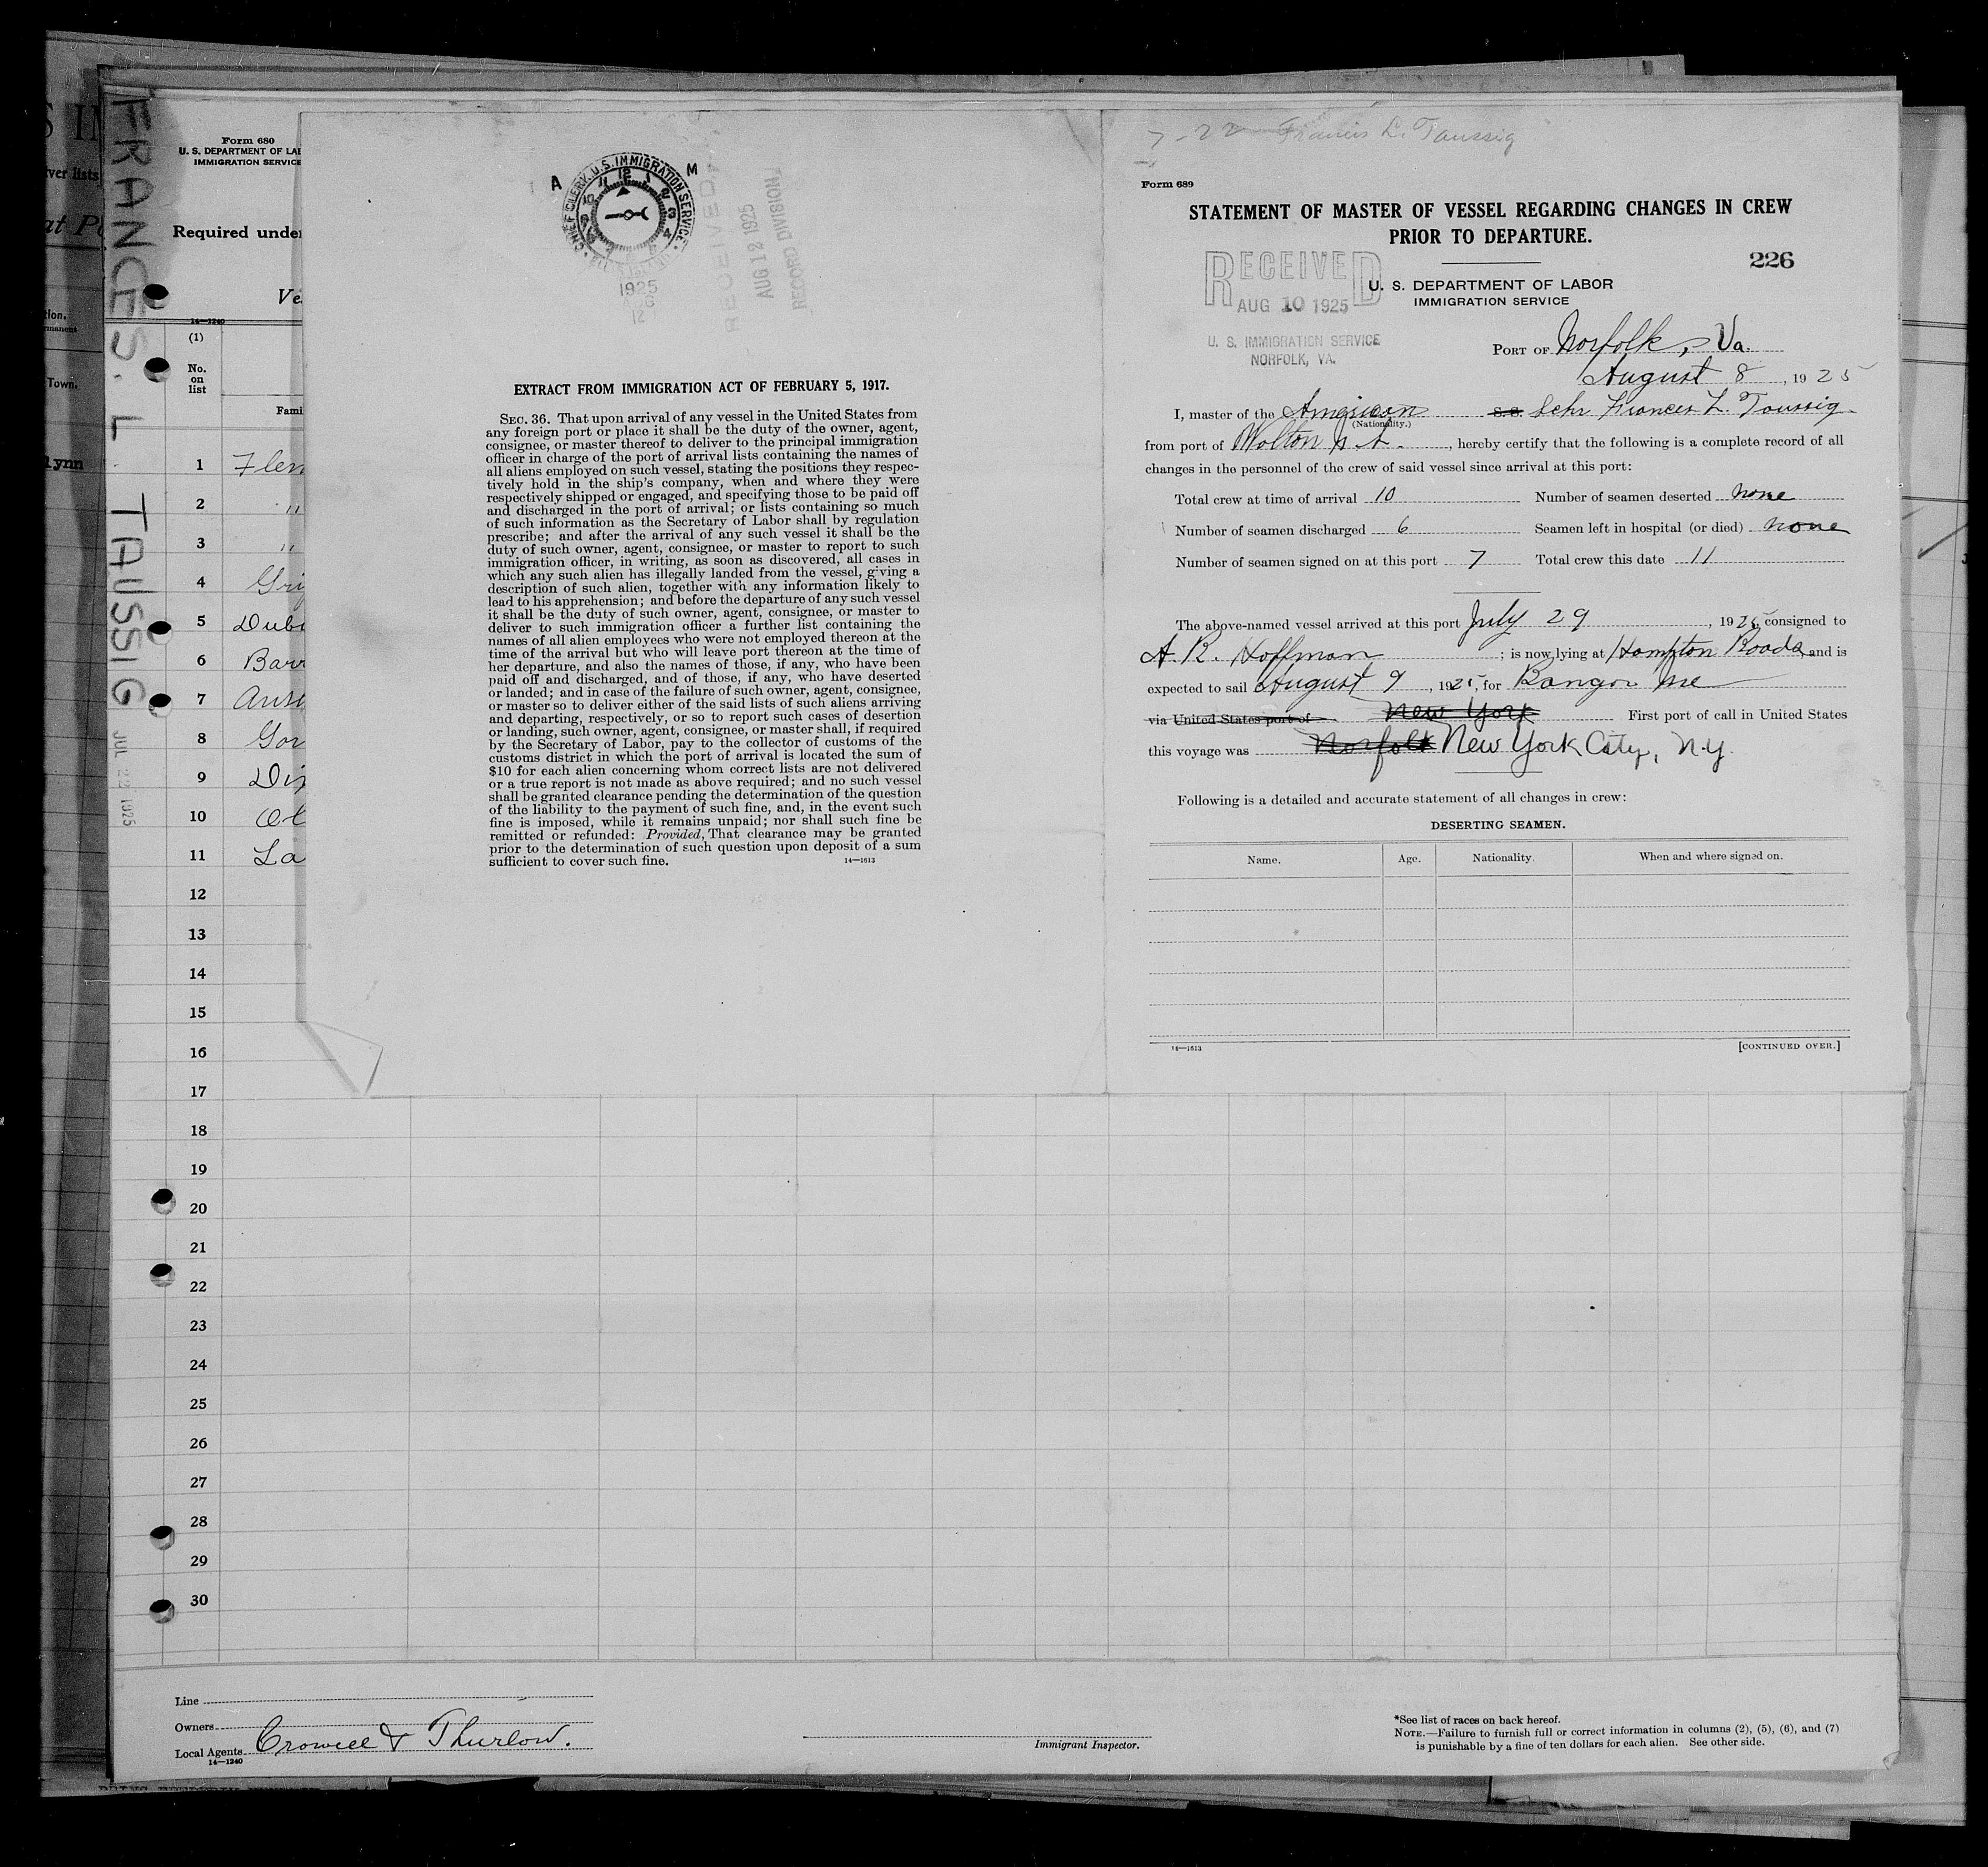 S IN
ver lists
at P
tion.
manent
Town.
lynn
FRANCES. L. TAUSSIG
JUL 22 1925
Form 680
U. S. DEPARTMENT OF LA
IMMIGRATION SERVICE
Required unde
Ve
14—1240
(1)
No.
on
list
Fami
1 Flem
2 "
3 "
4 Gri
5 Dub
6 Barr
7 Aust
8 Gor
9 Dix
10
11 La
12
13
14
15
16
17
18
19
20
21
22
23
24
25
26
27
28
29
30
Line
Owners
Local Agents Crowell & Thurlow.
14—1240
Immigrant Inspector.
*See list of races on back hereof.
NOTE.—Failure to furnish full or correct information in columns (2), (5), (6), and (7)
is punishable by a fine of ten dollars for each alien. See other side.
A M
CHIEF CLERK, U.S. IMMIGRATION SERVICE
1925
12
RECEIVED
AUG 12 1925
RECORD DIVISION
EXTRACT FROM IMMIGRATION ACT OF FEBRUARY 5, 1917.
SEC. 36. That upon arrival of any vessel in the United States from
any foreign port or place it shall be the duty of the owner, agent,
consignee, or master thereof to deliver to the principal immigration
officer in charge of the port of arrival lists containing the names of
all aliens employed on such vessel, stating the positions they respec-
tively hold in the ship's company, when and where they were
respectively shipped or engaged, and specifying those to be paid off
and discharged in the port of arrival; or lists containing so much
of such information as the Secretary of Labor shall by regulation
prescribe; and after the arrival of any such vessel it shall be the
duty of such owner, agent, consignee, or master to report to such
immigration officer, in writing, as soon as discovered, all cases in
which any such alien has illegally landed from the vessel, giving a
description of such alien, together with any information likely to
lead to his apprehension; and before the departure of any such vessel
it shall be the duty of such owner, agent, consignee, or master to
deliver to such immigration officer a further list containing the
names of all alien employees who were not employed thereon at the
time of the arrival but who will leave port thereon at the time of
her departure, and also the names of those, if any, who have been
paid off and discharged, and of those, if any, who have deserted
or landed; and in case of the failure of such owner, agent, consignee,
or master so to deliver either of the said lists of such aliens arriving
and departing, respectively, or so to report such cases of desertion
or landing, such owner, agent, consignee, or master shall, if required
by the Secretary of Labor, pay to the collector of customs of the
customs district in which the port of arrival is located the sum of
$10 for each alien concerning whom correct lists are not delivered
or a true report is not made as above required; and no such vessel
shall be granted clearance pending the determination of the question
of the liability to the payment of such fine, and, in the event such
fine is imposed, while it remains unpaid; nor shall such fine be
remitted or refunded: Provided, That clearance may be granted
prior to the determination of such question upon deposit of a sum
sufficient to cover such fine. 14—1613
7-22 Francis L. Taussig
Form 689
STATEMENT OF MASTER OF VESSEL REGARDING CHANGES IN CREW
PRIOR TO DEPARTURE.
226
RECEIVED
AUG 10 1925
U. S. IMMIGRATION SERVICE
NORFOLK, VA.
U. S. DEPARTMENT OF LABOR
IMMIGRATION SERVICE
PORT OF Norfolk, Va.
August 8, 1925
I, master of the American S.S. Schr Frances L. Taussig
(Nationality.)
from port of Walton N.S., hereby certify that the following is a complete record of all
changes in the personnel of the crew of said vessel since arrival at this port:
Total crew at time of arrival 10 Number of seamen deserted none
Number of seamen discharged 6 Seamen left in hospital (or died) none
Number of seamen signed on at this port 7 Total crew this date 11
The above-named vessel arrived at this port July 29, 1925, consigned to
A. R. Hoffman; is now lying at Hampton Roads, and is
expected to sail August 9, 1925, for Bangor Me
via United States port of New York First port of call in United States
this voyage was Norfolk New York City, N.Y.
Following is a detailed and accurate statement of all changes in crew:
DESERTING SEAMEN.
Name. Age. Nationality. When and where signed on.
14—1613 [CONTINUED OVER.]